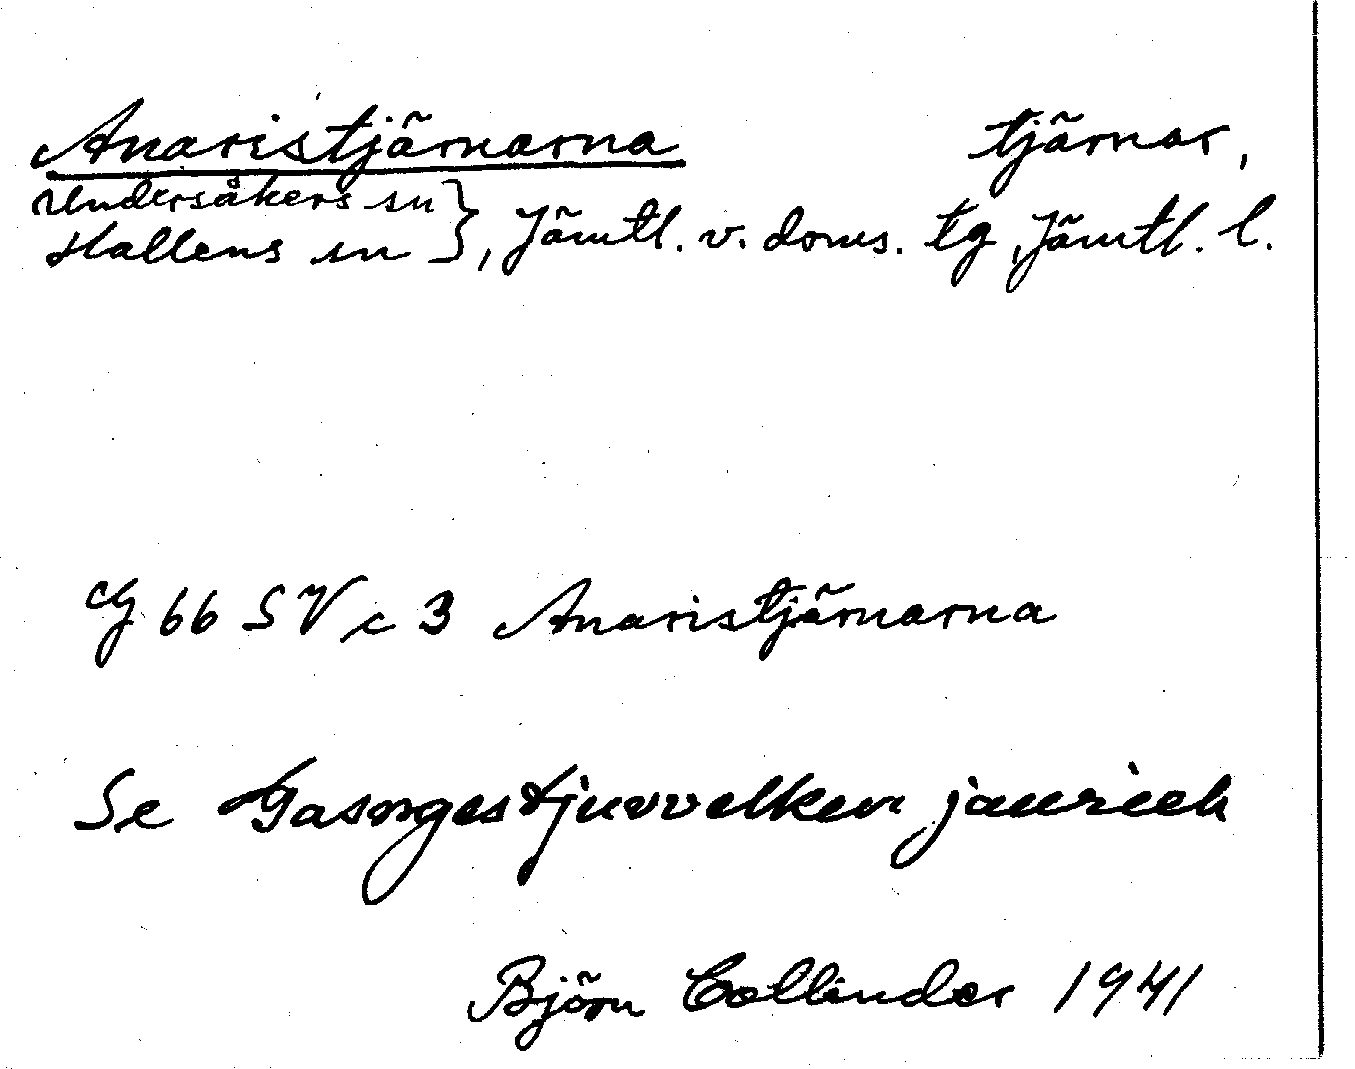 Anaristjärnarna tjärnar,
Undersåkers sn
Hallens sn }, Jämtl. v. doms. tg, Jämtl. l.
G 66 SV c 3 Anaristjärnarna
Se Gasngestjuvvelken jaurieh
Björn Collinder 1941